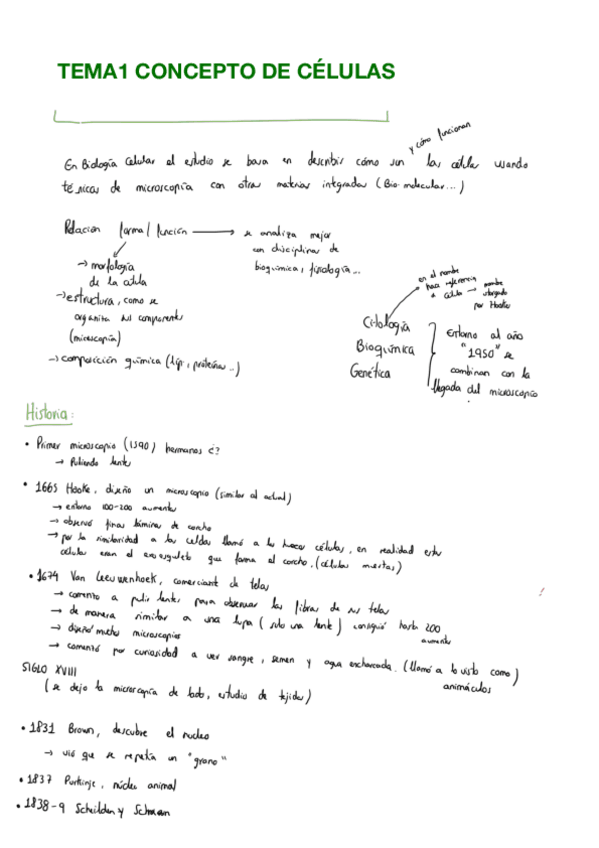 TEMA1 CONCEPTO DE CÉLULAS
y cómo funcionan
En Biología Celular el estudio se basa en describir cómo son las célular usando
técnicas de microscopía con otras materias integradas (Bio. molecular...)
Relacion forma/función → se analiza mejor
con disciplinas de
bioquímica, fisiología...
→ morfología
de la célula
→ estructura, como se
organiza sus componentes
(microscopía)
→ composición química (líp., proteínas..)
en el nombre
hace referencia
a célula → nombre
otorgado
por Hooke
Citología
Bioquímica
Genética
Entorno al año
"1950" se
combinan con la
llegada del microscopio
Historia:
• Primer microscopio (1590) hermanos ¿?
→ Puliendo lentes
• 1665 Hooke, diseño un microscopio (similar al actual)
→ entorno 100-200 aumentos
→ observó finas láminas de corcho
→ por la similaridad a las celdas llamó a los huecos células, en realidad estas
células eran el exoesqueleto que forma el corcho. (células muertas)
• 1674 Van Leeuwenhoek, comerciante de telas
→ comenzo a pulir lentes para observar las fibras de sus telas
→ de manera similar a una lupa (solo una lente) consiguió hasta 200
aumentos
→ diseñó muchos microscopios
→ comenzó por curiosidad a ver sangre, semen y agua encharcada. (llamó a lo visto como)
animáculos
!
SIGLO XVIII
(se dejo la microscopía de lado, estudio de tejidos)
• 1831 Brown, descubre el nucleo
→ vió que se repetía un "grano"
• 1837 Purkinje, núcleo animal
• 1838-9 Scheilden y Schwann